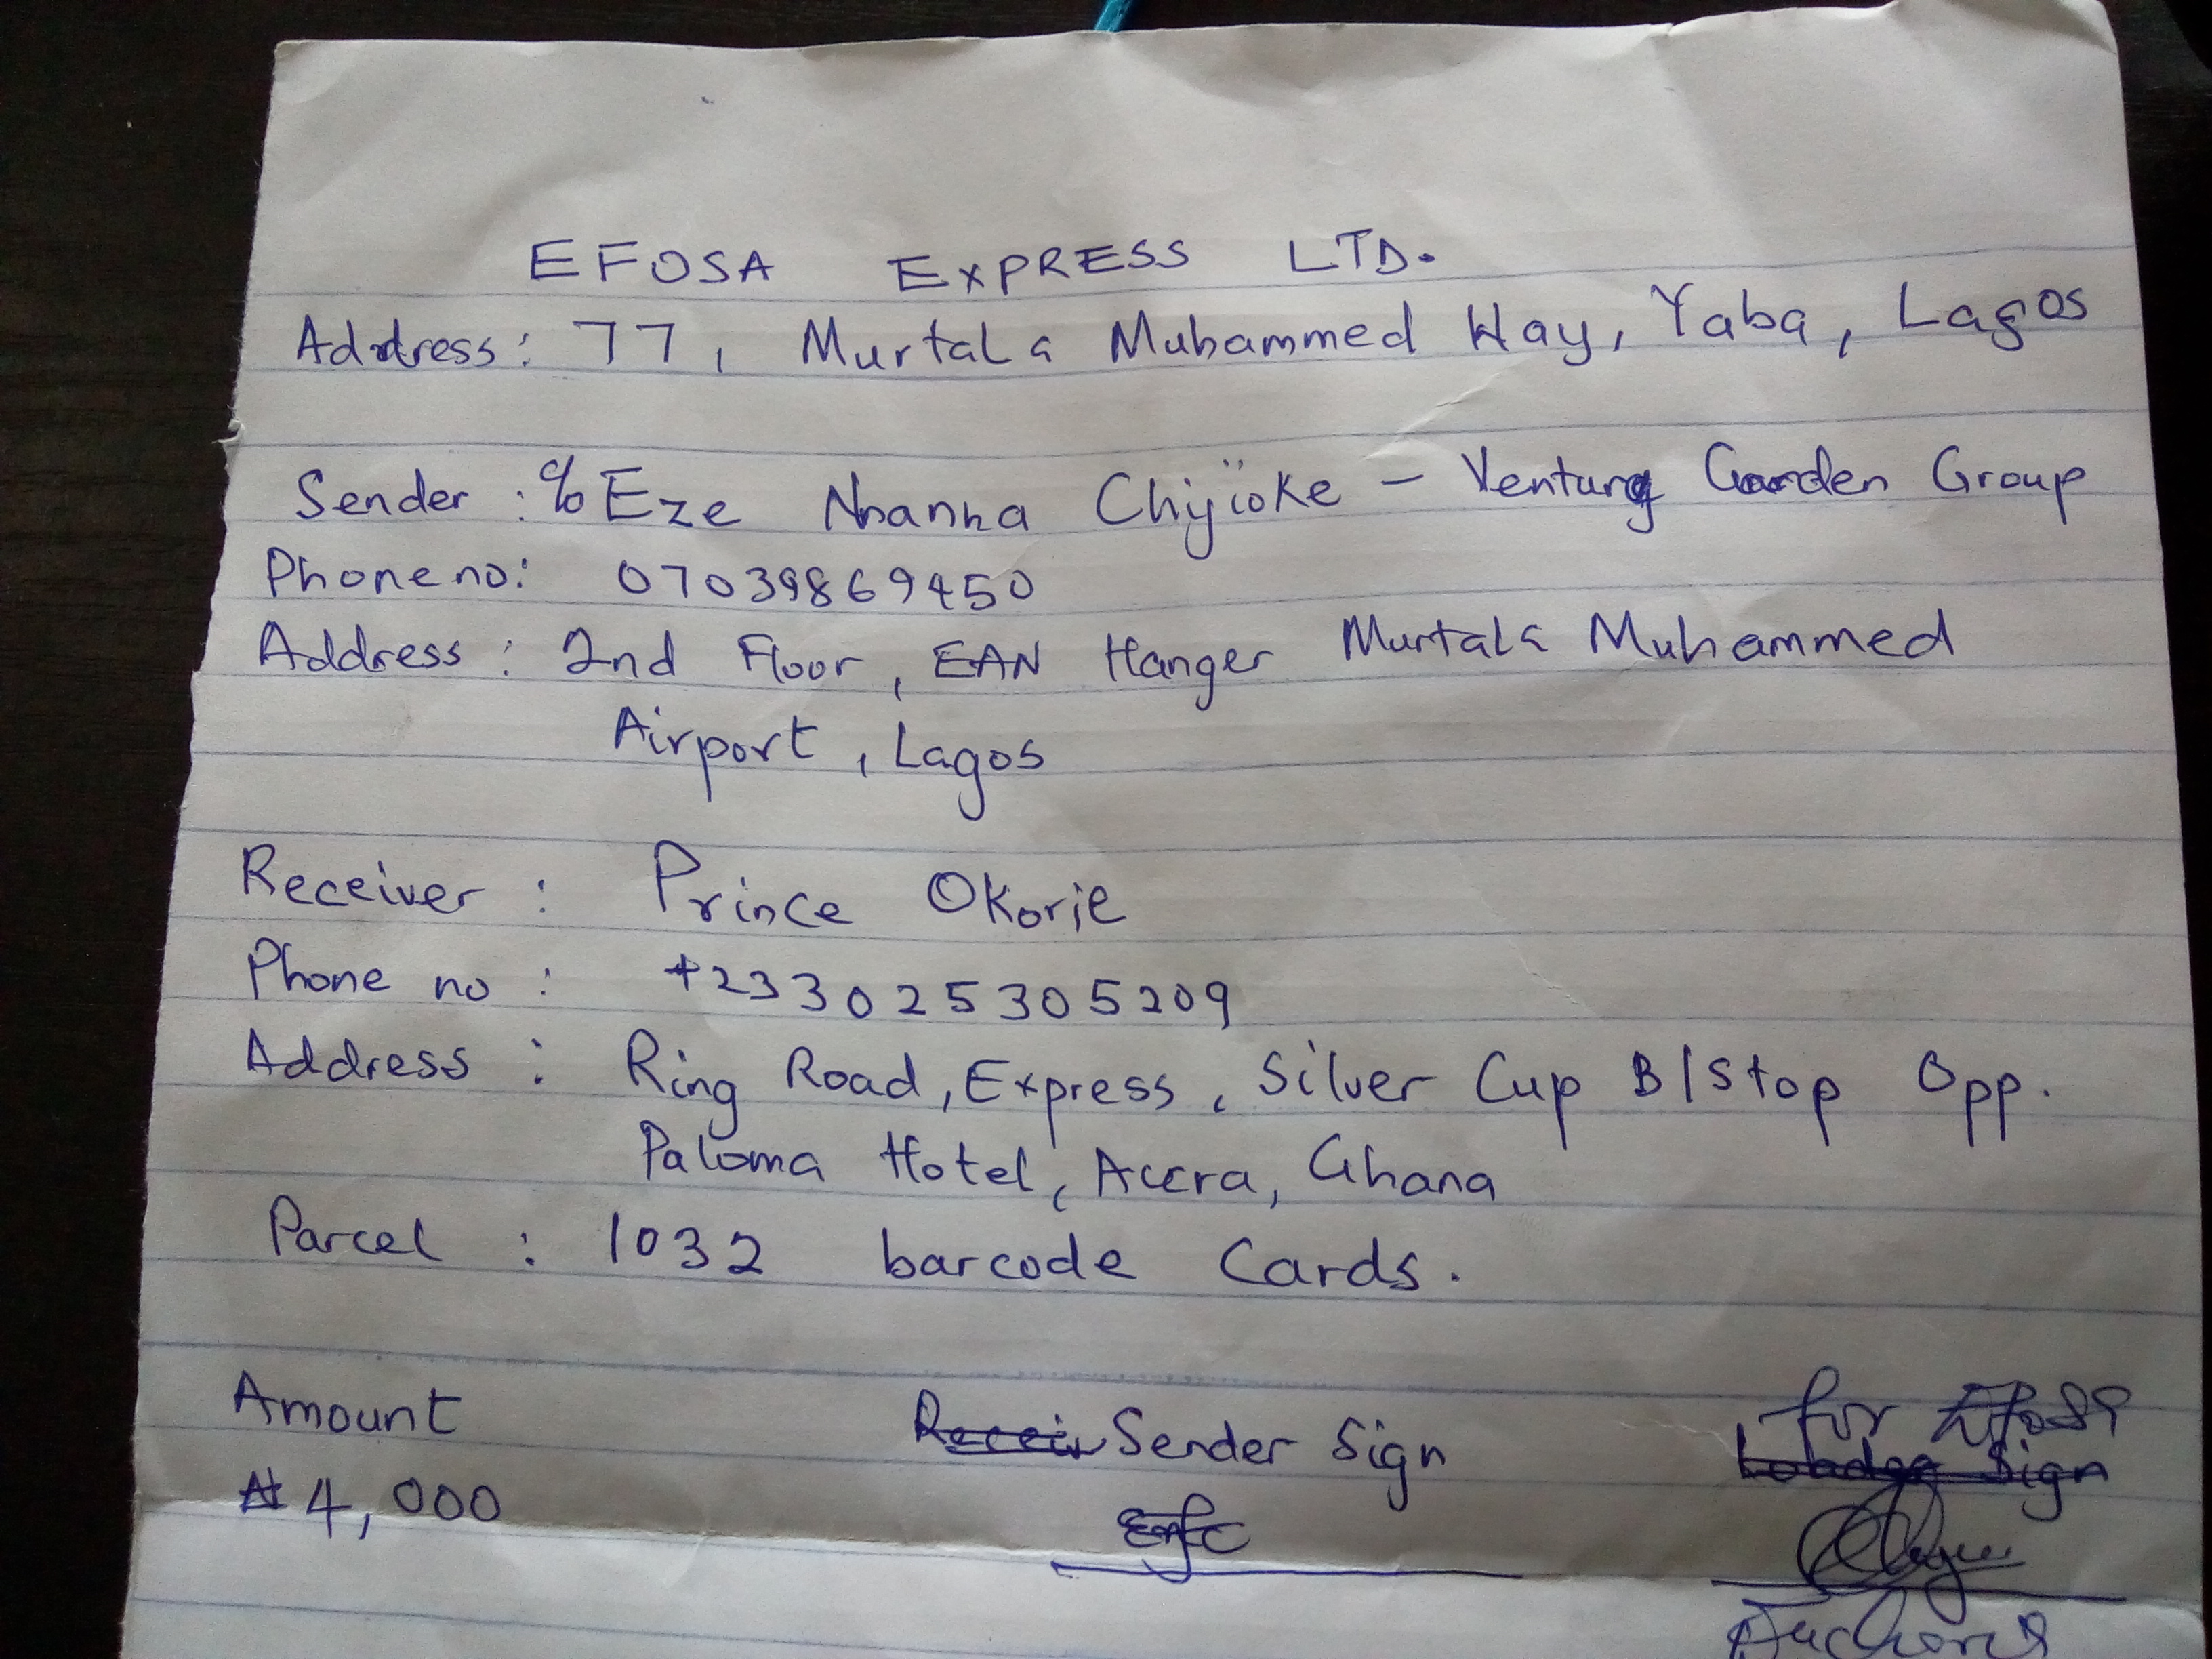 EFOSA EXPRESS LTD.
Address: 77, Murtala Muhammed Way, Yaba, Lagos
Sender: % Eze Nnanna Chijioke - Venture Garden Group
Phone no: 07039869450
Address: 2nd Floor, EAN Hanger Murtala Muhammed
Airport, Lagos
Receiver: Prince Okorie
Phone no: +233025305209
Address: Ring Road, Express, Silver Cup B/Stop Opp.
Paloma Hotel, Accra, Ghana
Parcel: 1032 barcode Cards.
Amount
Sender Sign
for Efosa
₦4,000